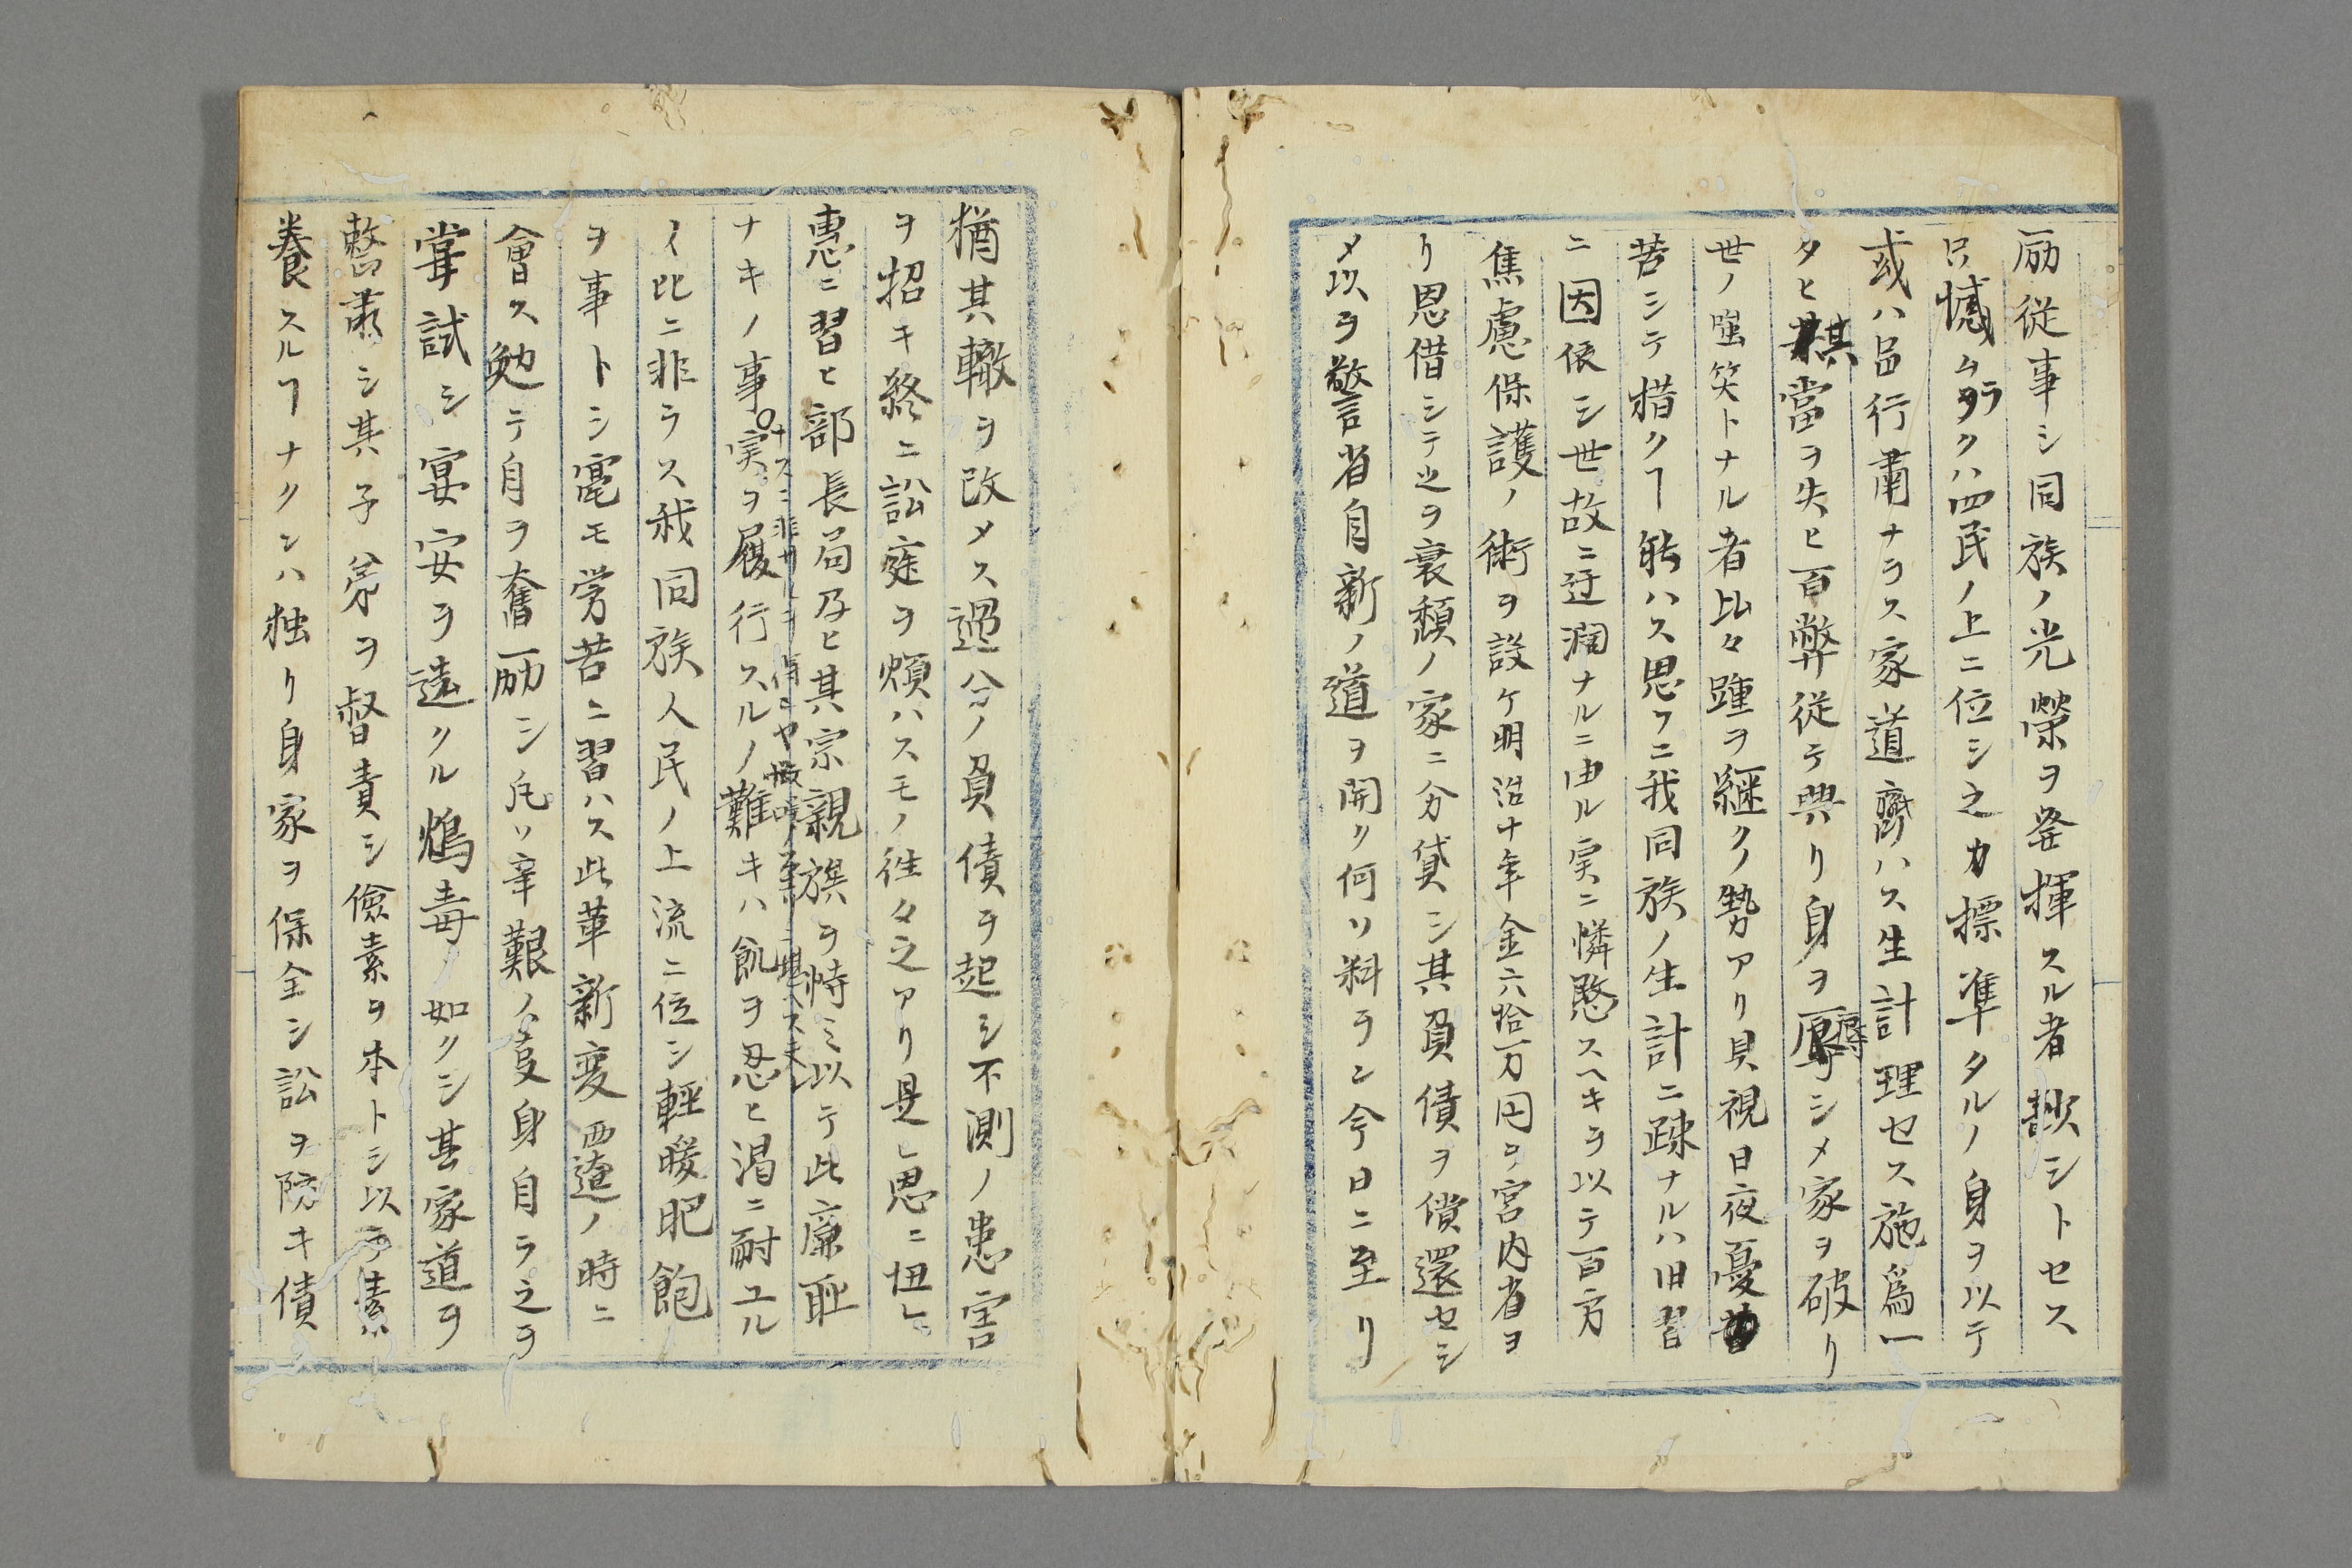 励従事シ同族ノ光榮ヲ発揮スル者尠シトセス
只憾ムラクハ四民ノ上ニ位シ之カ標準タルノ身ヲ以テ
或ハ品行粛ナラス家道齊ハス生計理セス施為一
タヒ其當ヲ失ヒ百弊従テ興リ身ヲ辱シメ家ヲ破リ
世ノ嗤笑トナル者比々踵ヲ継クノ勢アリ具視日夜憂
苦シテ措クヿ能ハス思フニ我同族ノ生計ニ疎ナルハ旧習
ニ因依シ世故ニ迂濶ナルニ由ル実ニ憐愍スヘキヲ以テ百方
焦慮保護ノ術ヲ設ケ明治十年金六拾万円ヲ宮内省ヨ
リ恩借シテ之ヲ衰頽ノ家ニ分貸シ其負債ヲ償還セシ
メ以ラ警省自新ノ道ヲ開ク何ソ料ラン今日ニ至リ
猶其轍ヲ改メス過分ノ負債ヲ起シ不測ノ患害
ヲ招キ終ニ訟庭ヲ煩ハスモノ徃々之アリ是レ恩ニ忸レ
惠ニ習ヒ部長局及ヒ其宗親族ヲ恃ミ以テ此廉耻
ナキノ事ヲナスニ非サル
実ヲ履行スルノ難キハ飢ヲ忍ヒ渇ニ耐ユル
ノ比ニ非ラス我同族人民ノ上流ニ位シ輕暖肥飽
ヲ事トシ毫モ労苦ニ習ハス此革新変遷ノ時ニ
會ス勉テ自ヲ奮励シ凡ソ辛艱ノ事身自ラ之ヲ
甞試シ宴安ヲ遠クル鴆毒ノ如クシ其家道ヲ
整粛シ其子弟ヲ督責シ儉素ヲ本トシ以テ素
養スルヿナクンハ独リ身家ヲ保全シ訟ヲ防キ債